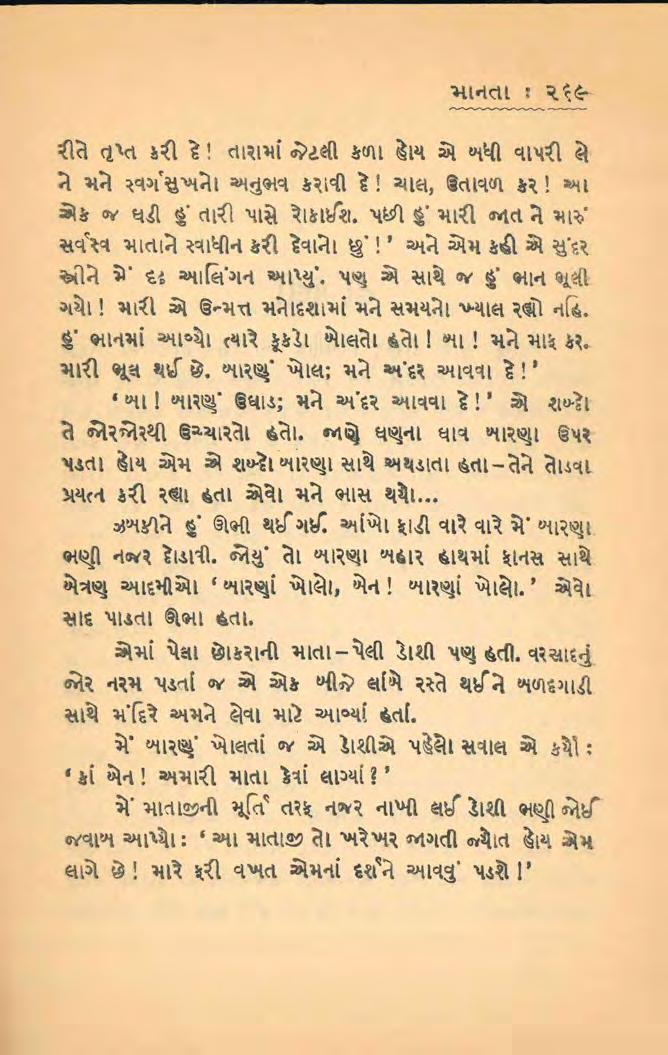 માનતા : ૨૬૯
રીતે તૃપ્ત કરી દે! તારામાં જેટલી કળા હોય એ બધી વાપરી લે
ને મને સ્વર્ગસુખનો અનુભવ કરાવી દે! ચાલ, ઉતાવળ કર! આ
એક જ ઘડી હું તારી પાસે રોકાઈશ. પછી હું મારી જાત ને મારું
સર્વસ્વ માતાને સ્વાધીન કરી દેવાનો છું!’ અને એમ કહી એ સુંદર
સ્ત્રીને મેં દૃઢ આલિંગન આપ્યું. પણ એ સાથે જ હું ભાન ભૂલી
ગયો! મારી એ ઉન્મત્ત મનોદશામાં મને સમયનો ખ્યાલ રહ્યો નહિ.
હું ભાનમાં આવ્યો ત્યારે કૂકડો બોલતો હતો! બા! મને માફ કર.
મારી ભૂલ થઈ છે. બારણું ખોલ; મને અંદર આવવા દે!’
‘બા! બારણું ઉઘાડ; મને અંદર આવવા દે!’ એ શબ્દો
તે જોરજોરથી ઉચ્ચારતો હતો. જાણે ઘણના ઘાવ બારણા ઉપર
પડતા હોય એમ એ શબ્દો બારણા સાથે અથડાતા હતા–તેને તોડવા
પ્રયત્ન કરી રહ્યા હતા એવો મને ભાસ થયો...
ઝબકીને હું ઊભી થઈ ગઈ. આંખો ફાડી વારે વારે મેં બારણા
ભણી નજર દોડાવી. જોયું તો બારણા બહાર હાથમાં ફાનસ સાથે
બેત્રણ આદમીઓ ‘બારણાં ખોલો, બેન! બારણાં ખોલો.’ એવો
સાદ પાડતા ઊભા હતા.
એમાં પેલા છોકરાની માતા–પેલી ડોશી પણ હતી. વરસાદનું
જોર નરમ પડતાં જ એ એક બીજે લાંબે રસ્તે થઈને બળદગાડી
સાથે મંદિરે અમને લેવા માટે આવ્યાં હતાં.
મેં બારણું ખોલતાં જ એ ડોશીએ પહેલો સવાલ એ કર્યો :
‘કાં બેન! અમારી માતા કેવાં લાગ્યાં?’
મેં માતાજીની મૂર્તિ તરફ નજર નાખી લઈ ડોશી ભણી જોઈ
જવાબ આપ્યો : ‘આ માતાજી તો ખરેખર જાગતી જ્યોત હોય એમ
લાગે છે! મારે ફરી વખત એમનાં દર્શને આવવું પડશે!’